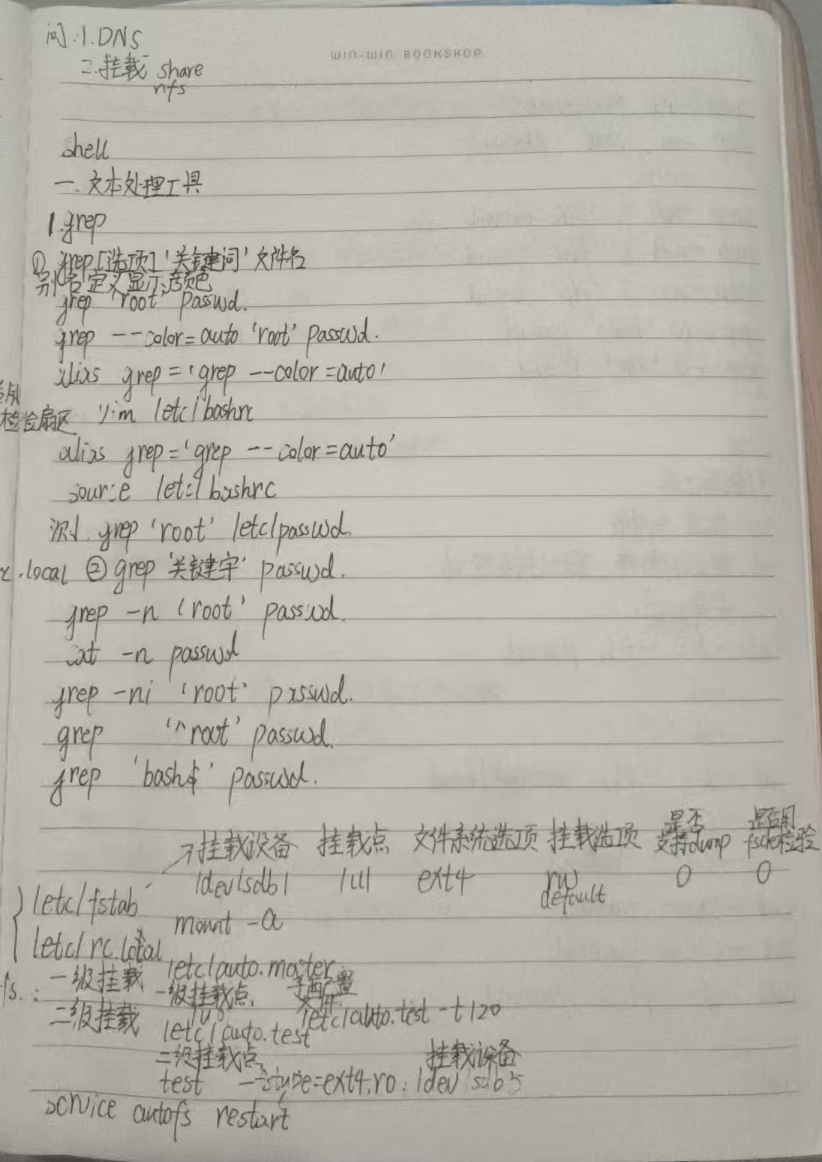 问:1.DNS
WIN-WIN BOOKSHOP
二.挂载 share
nfs
shell
一.文本处理工具
1.grep
① grep [选项] '关键词' 文件名
别名定义显示颜色
grep 'root' passwd.
grep --color=auto 'root' passwd.
alias grep='grep --color=auto'
检查扇区 vim /etc/bashrc
alias grep='grep --color=auto'
source /etc/bashrc
测. grep 'root' /etc/passwd.
.local ② grep '关键字' passwd.
grep -n 'root' passwd.
cat -n passwd
grep -ni 'root' passwd.
grep '^root' passwd.
grep 'bash$' passwd.
→挂载设备 挂载点 文件系统选项 挂载选项 是否支持dump 是否用fsck检验
/dev/sdb1 /u1 ext4 rw default 0 0
/etc/fstab
mount -a
/etc/rc.local
fs.: 一级挂载 /etc/auto.master
一级挂载点 子配置文件
二级挂载 /etc/auto.test -t 120
/etc/auto.test
二级挂载点 挂载设备
test -fstype=ext4,ro :/dev/sdb5
service autofs restart